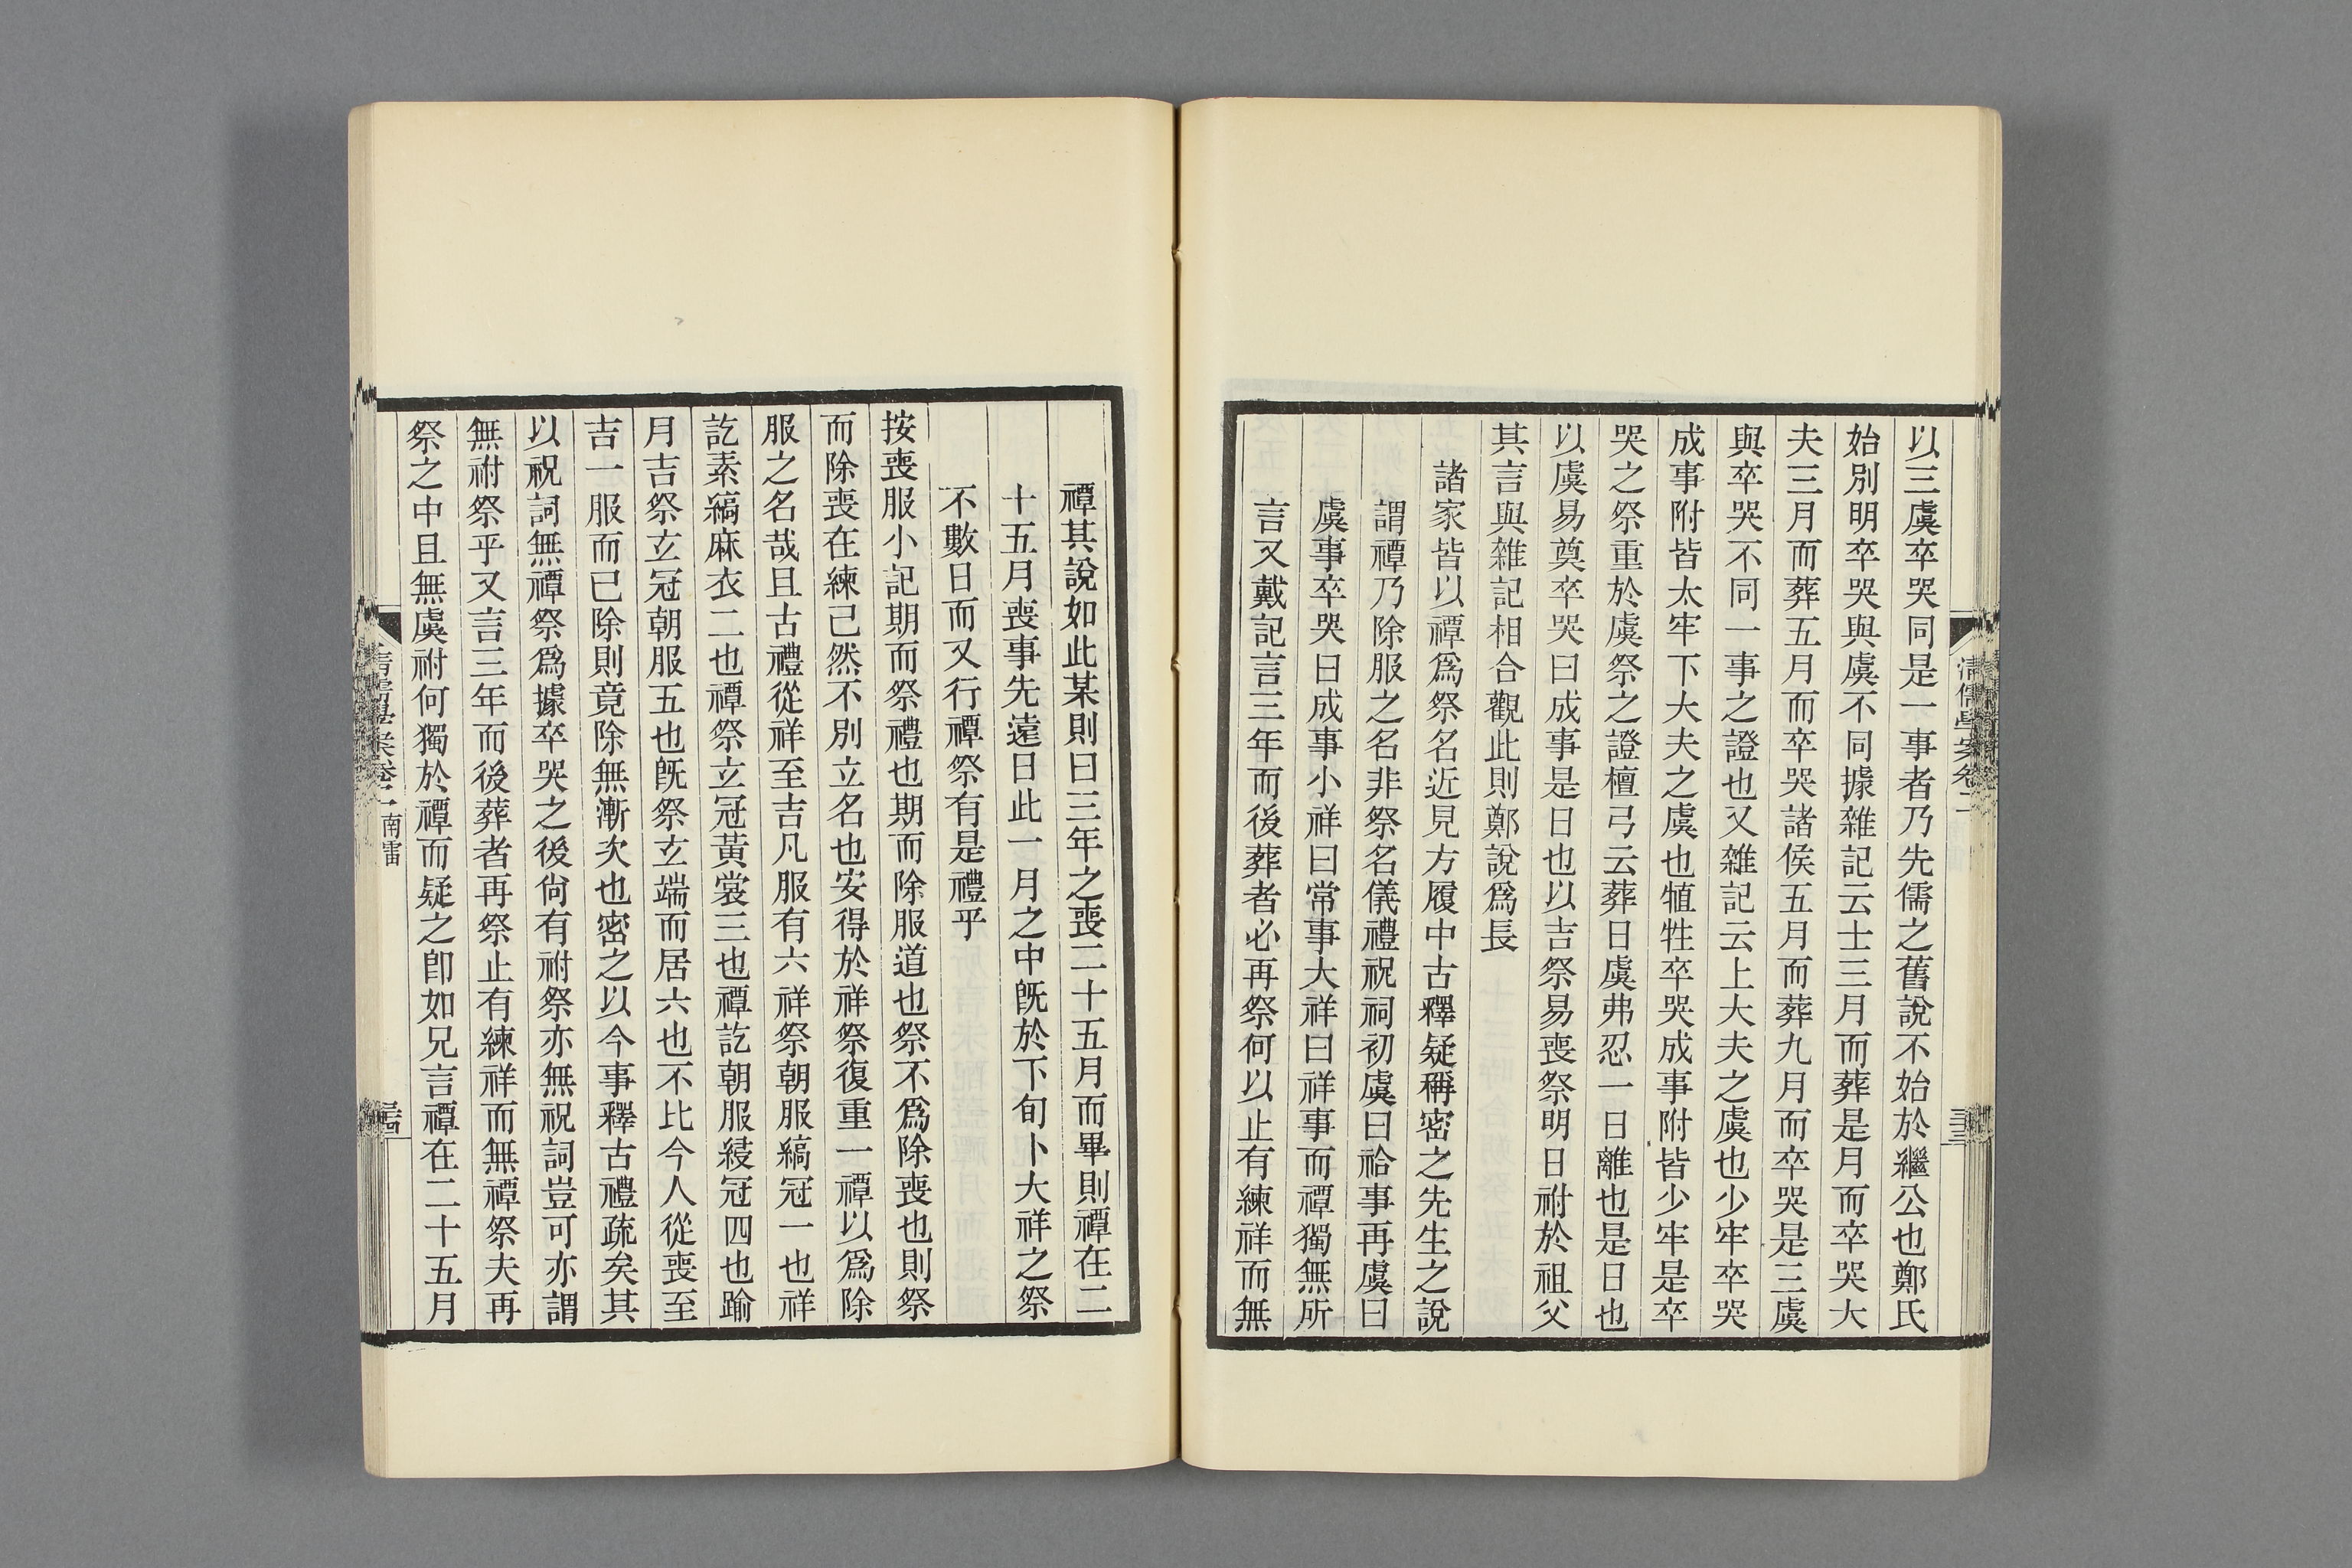 以三虞卒哭同是一事者乃先儒之舊說不始於繼公也鄭氏
始別明卒哭與虞不同據雜記云士三月而葬是月而卒哭大
夫三月而葬五月而卒哭諸侯五月而葬九月而卒哭是三虞
與卒哭不同一事之證也又雜記云上大夫之虞也少牢卒哭
成事附皆太牢下大夫之虞也犆牲卒哭成事附皆少牢是卒
哭之祭重於虞祭之證檀弓云葬日虞弗忍一日離也是日也
以虞易奠卒哭曰成事是日也以吉祭易喪祭明日祔於祖父
其言與雜記相合觀此則鄭說爲長
諸家皆以禫爲祭名近見方履中古釋疑稱密之先生之說
謂禫乃除服之名非祭名儀禮祝祠初虞曰祫事再虞曰
虞事卒哭曰成事小祥曰常事大祥曰祥事而禫獨無所
言又戴記言三年而後葬者必再祭何以止有練祥而無
清儒學案卷二
三十三
禫其說如此某則曰三年之喪二十五月而畢則禫在二
十五月喪事先遠日此一月之中旣於下旬卜大祥之祭
不數日而又行禫祭有是禮乎
按喪服小記期而祭禮也期而除服道也祭不爲除喪也則祭
而除喪在練已然不別立名也安得於祥祭復重一禫以爲除
服之名哉且古禮從祥至吉凡服有六祥祭朝服縞冠一也祥
訖素縞麻衣二也禫祭玄冠黃裳三也禫訖朝服綅冠四也踰
月吉祭玄冠朝服五也旣祭玄端而居六也不比今人從喪至
吉一服而已除則竟除無漸次也密之以今事釋古禮疏矣其
以祝詞無禫祭爲據卒哭之後尙有祔祭亦無祝詞豈可亦謂
無祔祭乎又言三年而後葬者再祭止有練祥而無禫祭夫再
祭之中且無虞祔何獨於禫而疑之卽如兄言禫在二十五月
清儒學案卷二 南雷
三十四